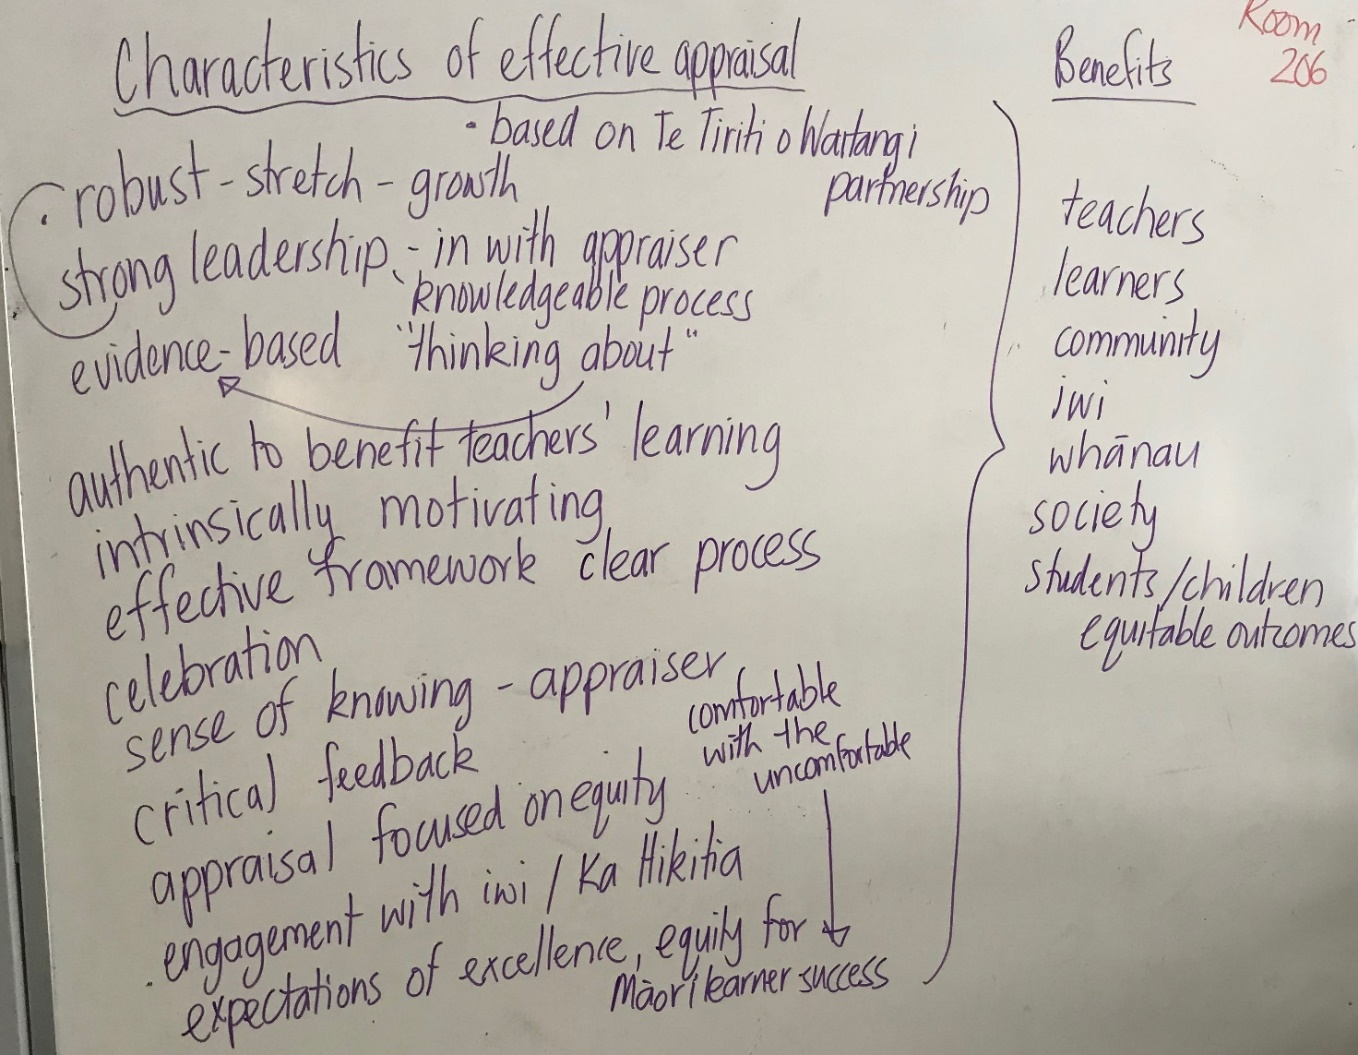 Room
206
Characteristics of effective appraisal
• based on Te Tiriti o Waitangi
partnership
• robust - stretch - growth
strong leadership - in with appraiser
knowledgeable process
evidence-based "thinking about"
authentic to benefit teachers' learning
intrinsically motivating
effective framework clear process
celebration
sense of knowing - appraiser
comfortable
with the
uncomfortable
critical feedback
appraisal focused on equity
engagement with iwi / Ka Hikitia
• expectations of excellence, equity for
Māori learner success
Benefits
teachers
learners
community
iwi
whānau
society
students/children
equitable outcomes